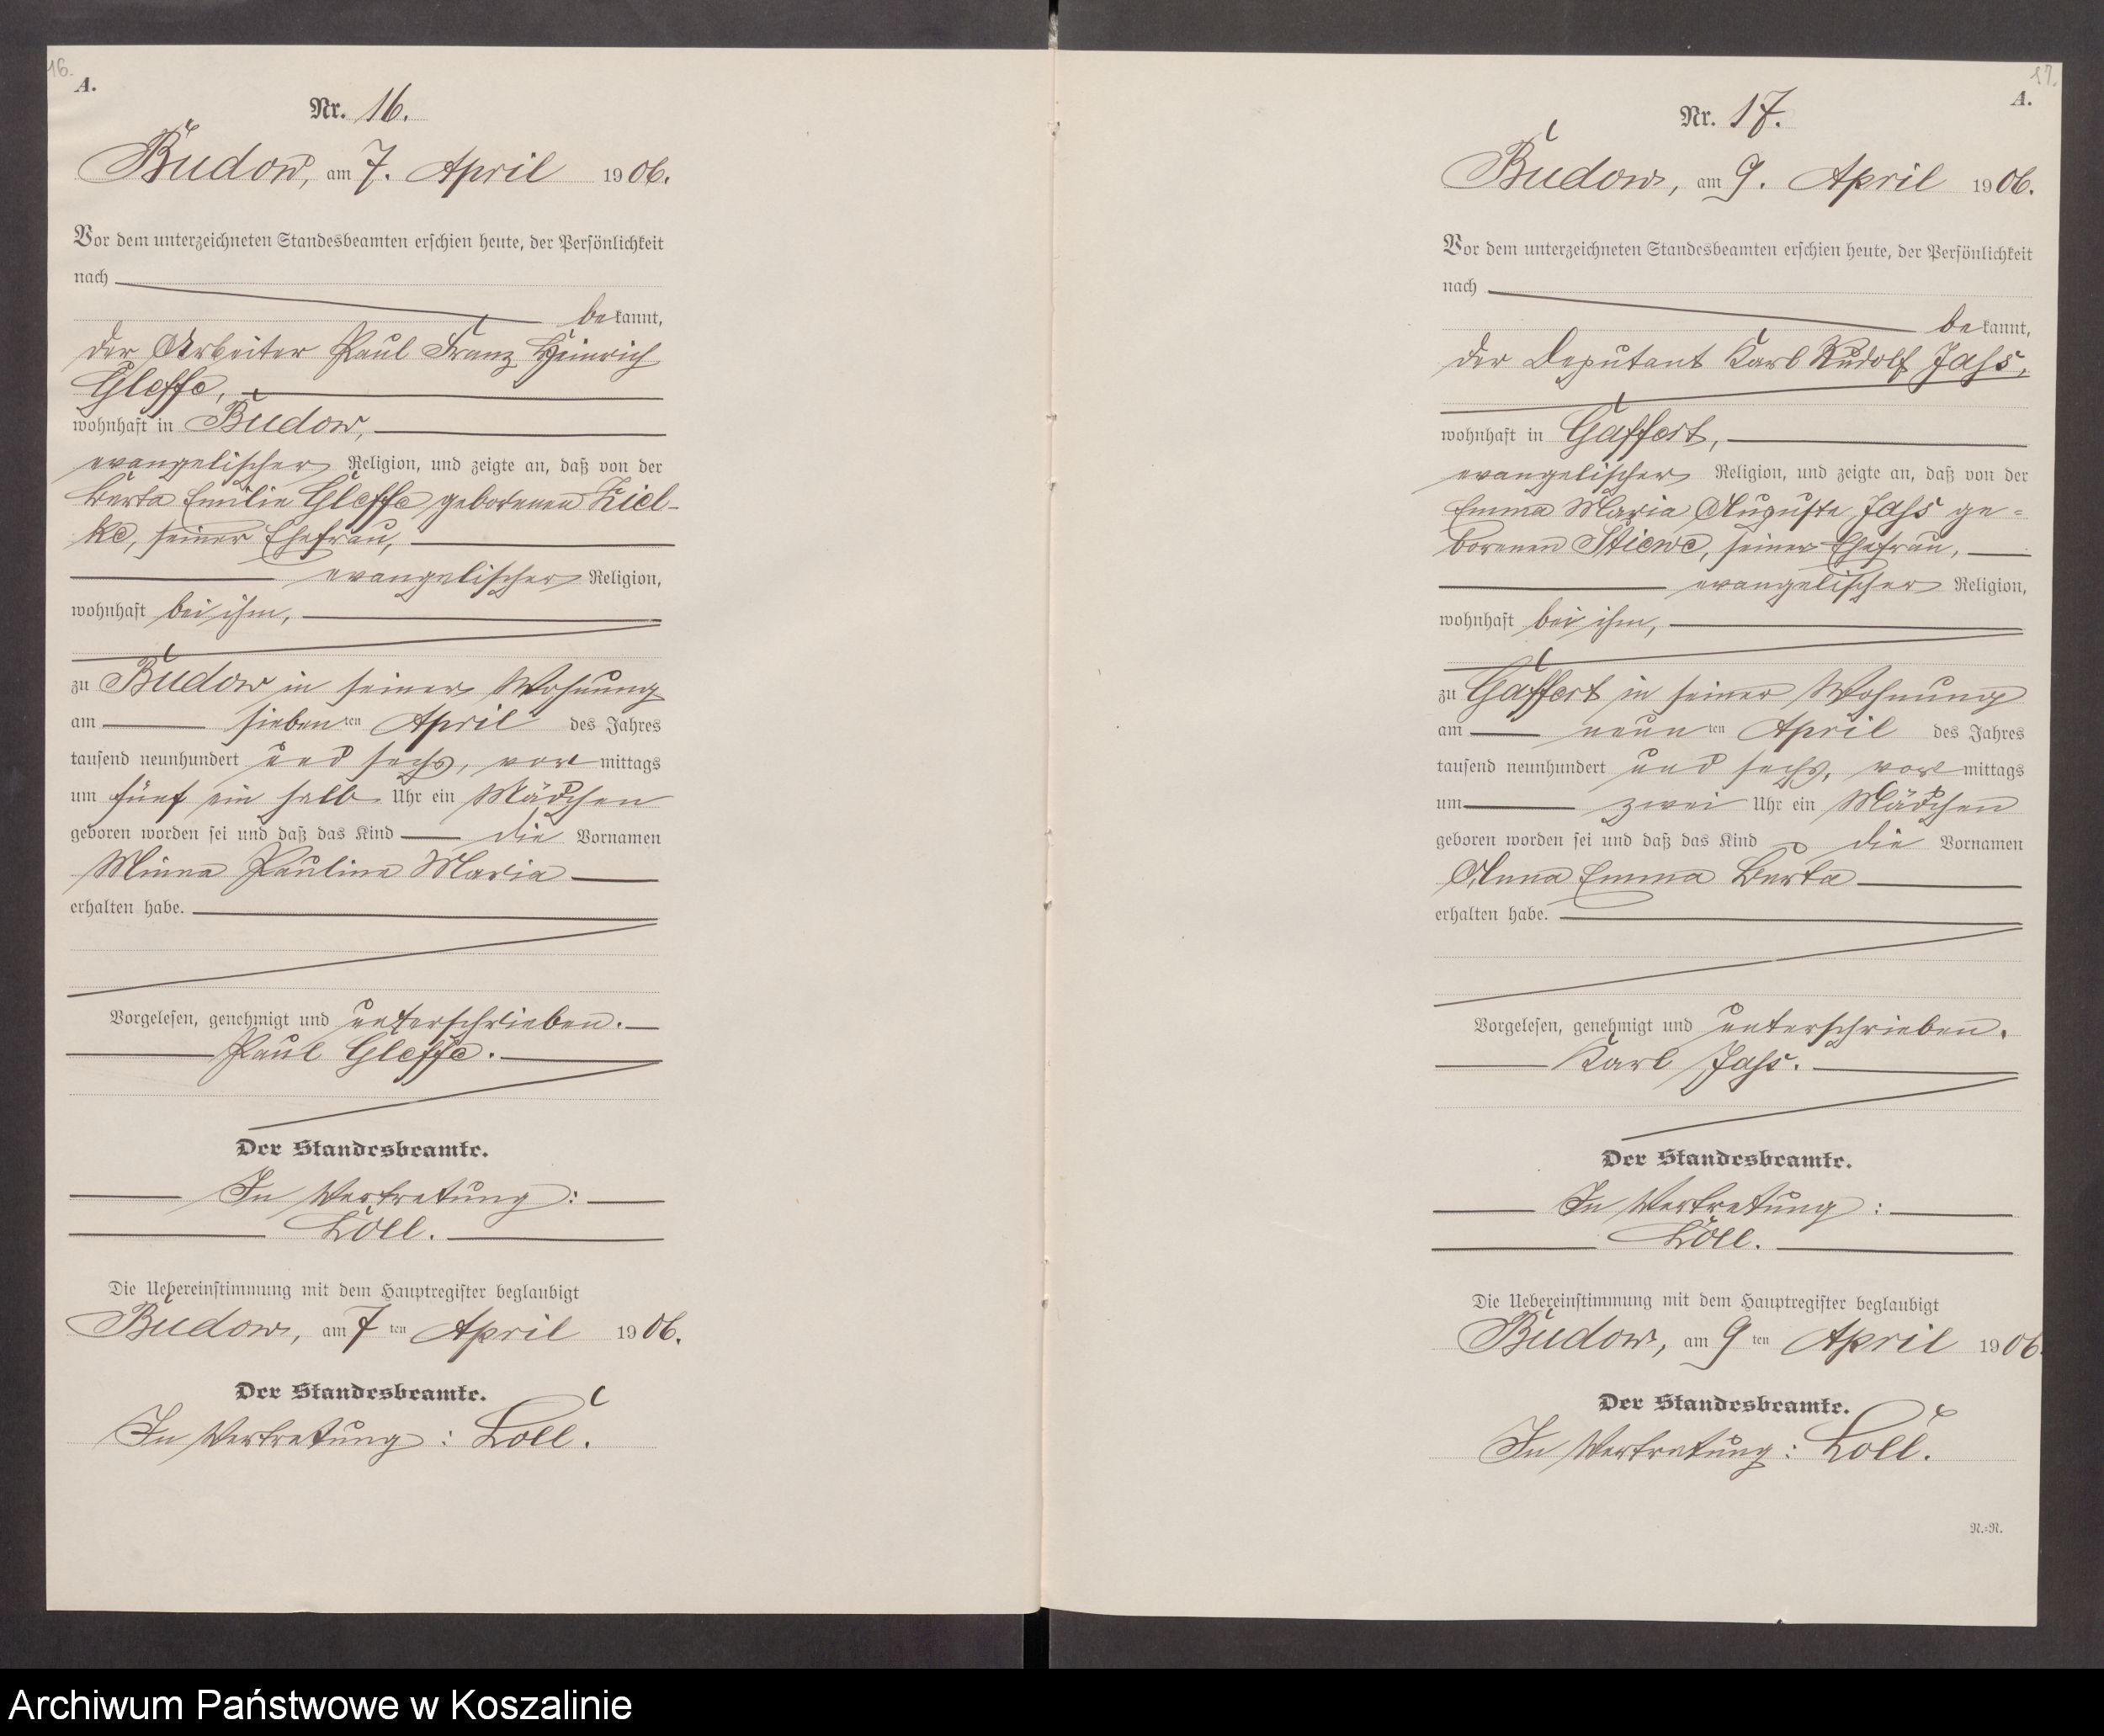 16.
A.
Nr. 16.
Budow, am 7. April 1906.
Vor dem unterzeichneten Standesbeamten erschien heute, der Persönlichkeit
nach
bekannt,
der Arbeiter Paul Franz Heinrich
Gleffe,
wohnhaft in Budow,
evangelischer Religion, und zeigte an, daß von der
Berta Emilie Gleffe geborenen Kiel-
ke, seiner Ehefrau,
evangelischer Religion,
wohnhaft bei ihm,
zu Budow in seiner Wohnung
am siebenten April des Jahres
tausend neunhundert und sechs, vormittags
um fünf ein halb Uhr ein Mädchen
geboren worden sei und daß das Kind die Vornamen
Minna Pauline Maria
erhalten habe.
Vorgelesen, genehmigt und unterschrieben.
Paul Gleffe.
Der Standesbeamte.
In Vertretung:
Löll.
Die Uebereinstimmung mit dem Hauptregister beglaubigt
Budow, am 7ten April 1906.
Der Standesbeamte.
In Vertretung: Löll.
17.
A.
Nr. 17.
Budow, am 9. April 1906.
Vor dem unterzeichneten Standesbeamten erschien heute, der Persönlichkeit
nach
bekannt,
der Deputant Karl Rudolf Jahs,
wohnhaft in Gaffert,
evangelischer Religion, und zeigte an, daß von der
Emma Maria Auguste Jahs ge-
borenen Stiewe, seiner Ehefrau,
evangelischer Religion,
wohnhaft bei ihm,
zu Gaffert in seiner Wohnung
am neunten April des Jahres
tausend neunhundert und sechs, vormittags
um zwei Uhr ein Mädchen
geboren worden sei und daß das Kind die Vornamen
Anna Emma Berta
erhalten habe.
Vorgelesen, genehmigt und unterschrieben.
Karl Jahs.
Der Standesbeamte.
In Vertretung:
Löll.
Die Uebereinstimmung mit dem Hauptregister beglaubigt
Budow, am 9ten April 1906.
Der Standesbeamte.
In Vertretung: Löll.
N.=N.
Archiwum Państwowe w Koszalinie